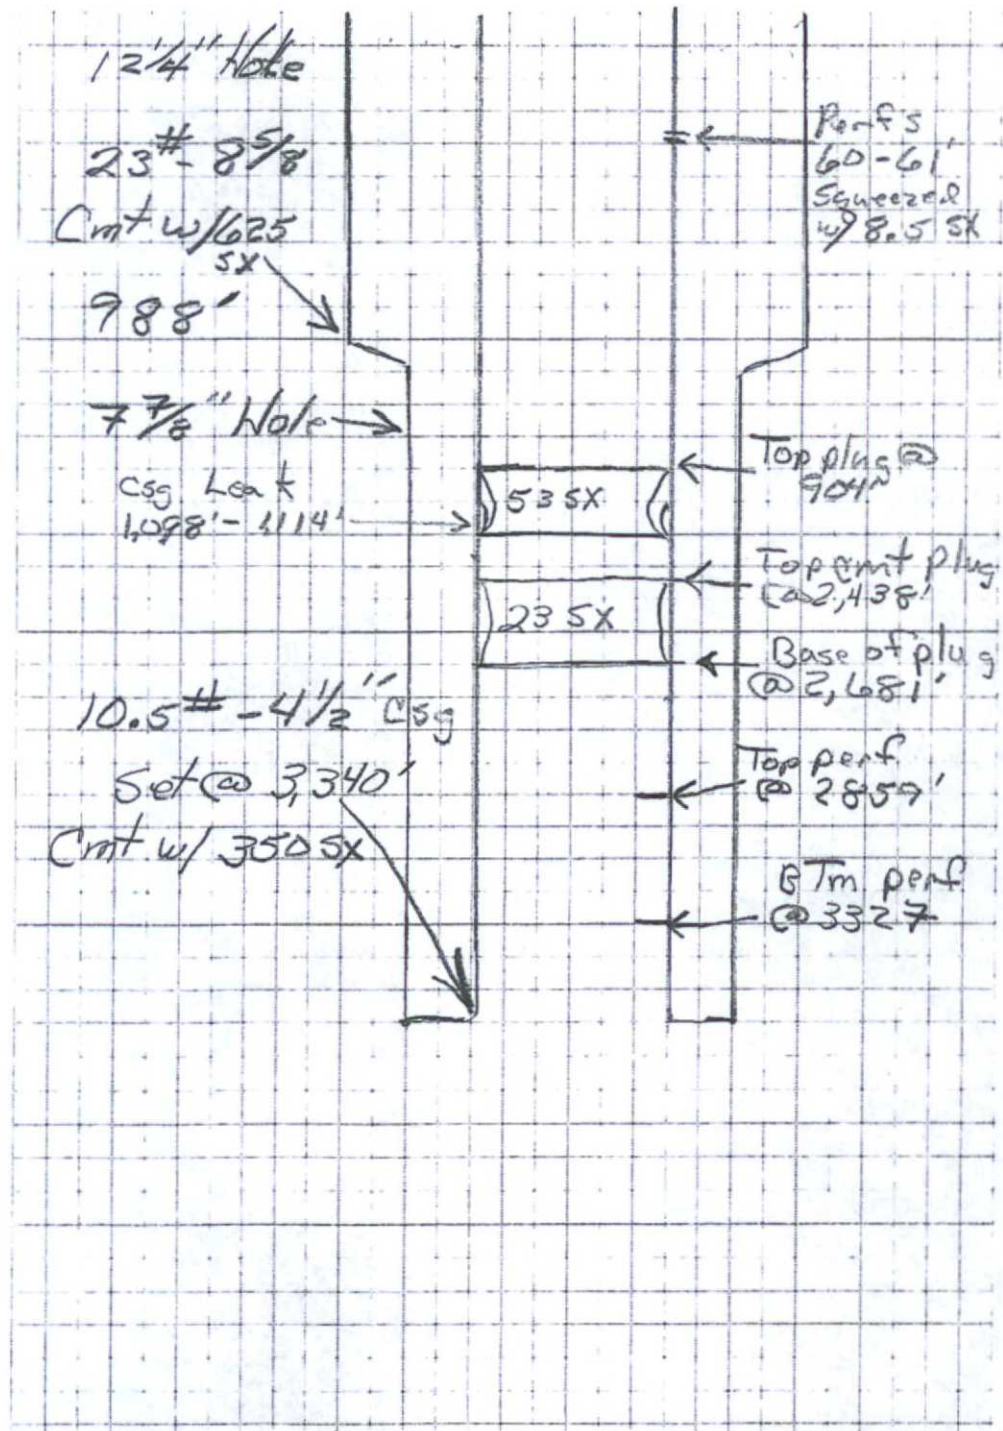 12 1/4" Hole
23# - 8 5/8
Cmt w/625
sx
988'
7 7/8" Hole
Csg Leak
1,098' - 1114'
10.5# - 4 1/2" Csg
Set @ 3,340'
Cmt w/ 350 sx
53 sx
23 sx
Perf's
60-61'
Squeezed
w/ 8.5 sx
Top plug @
904'
Top cmt plug
@ 2,438'
Base of plug
@ 2,681'
Top perf
@ 2859'
BTm perf
@ 3327